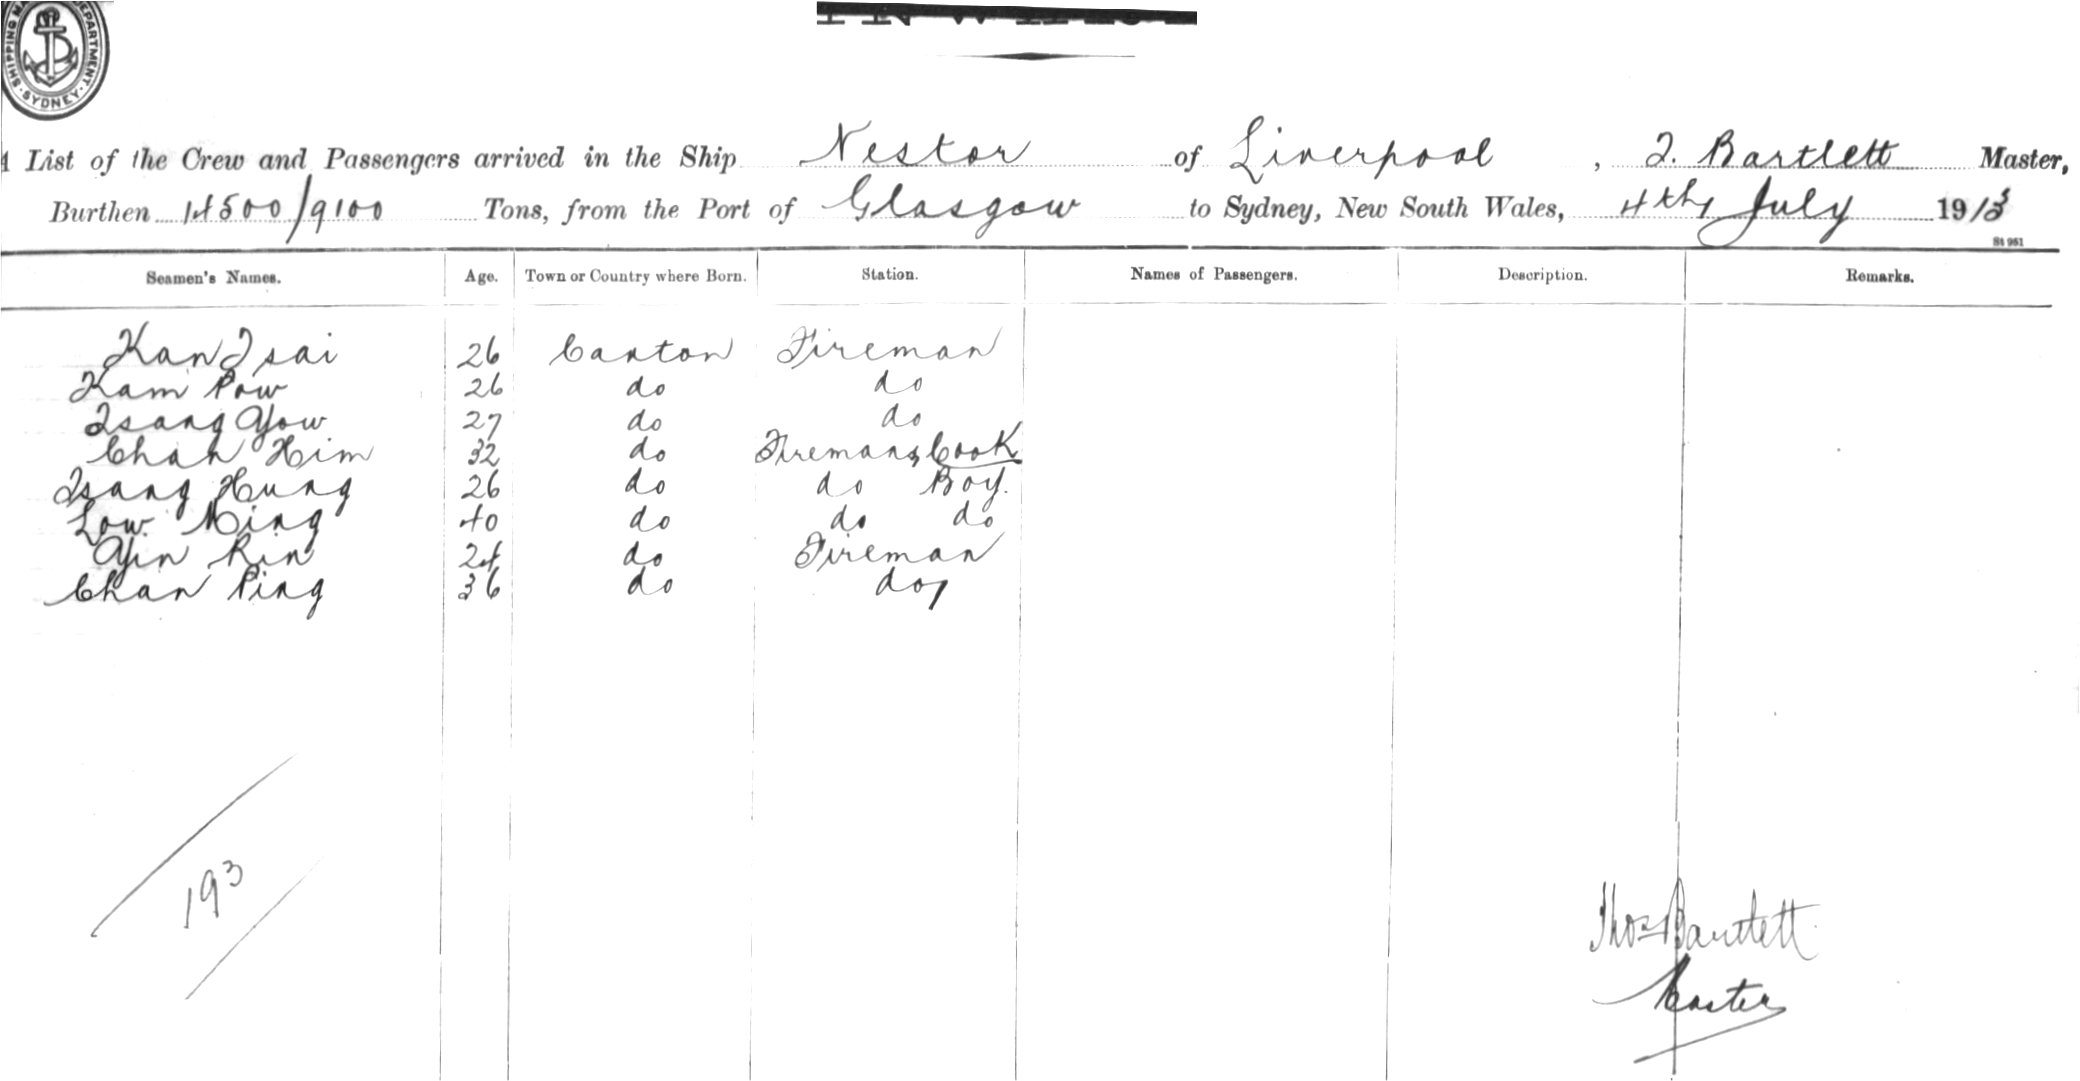 SHIPPING MA DEPARTMENT. SYDNEY.
List of the Crew and Passengers arrived in the Ship Nestor of Liverpool, T. Bartlett Master,
Burthen 14500/9100 Tons, from the Port of Glasgow to Sydney, New South Wales, 4th July 1913
St 961
Seamen's Names. Age. Town or Country where Born. Station. Names of Passengers. Description. Remarks.
Kan Tsai 26 Canton Fireman
Kam Pow 26 do do
Tsang Yow 27 do do
Chan Him 32 do Firemans Cook
Tsang Hung 26 do do Boy.
Low Ming 40 do do do
Yin Kin 24 do Fireman
Chan Ping 36 do do
193
Thos Bartlett
Master